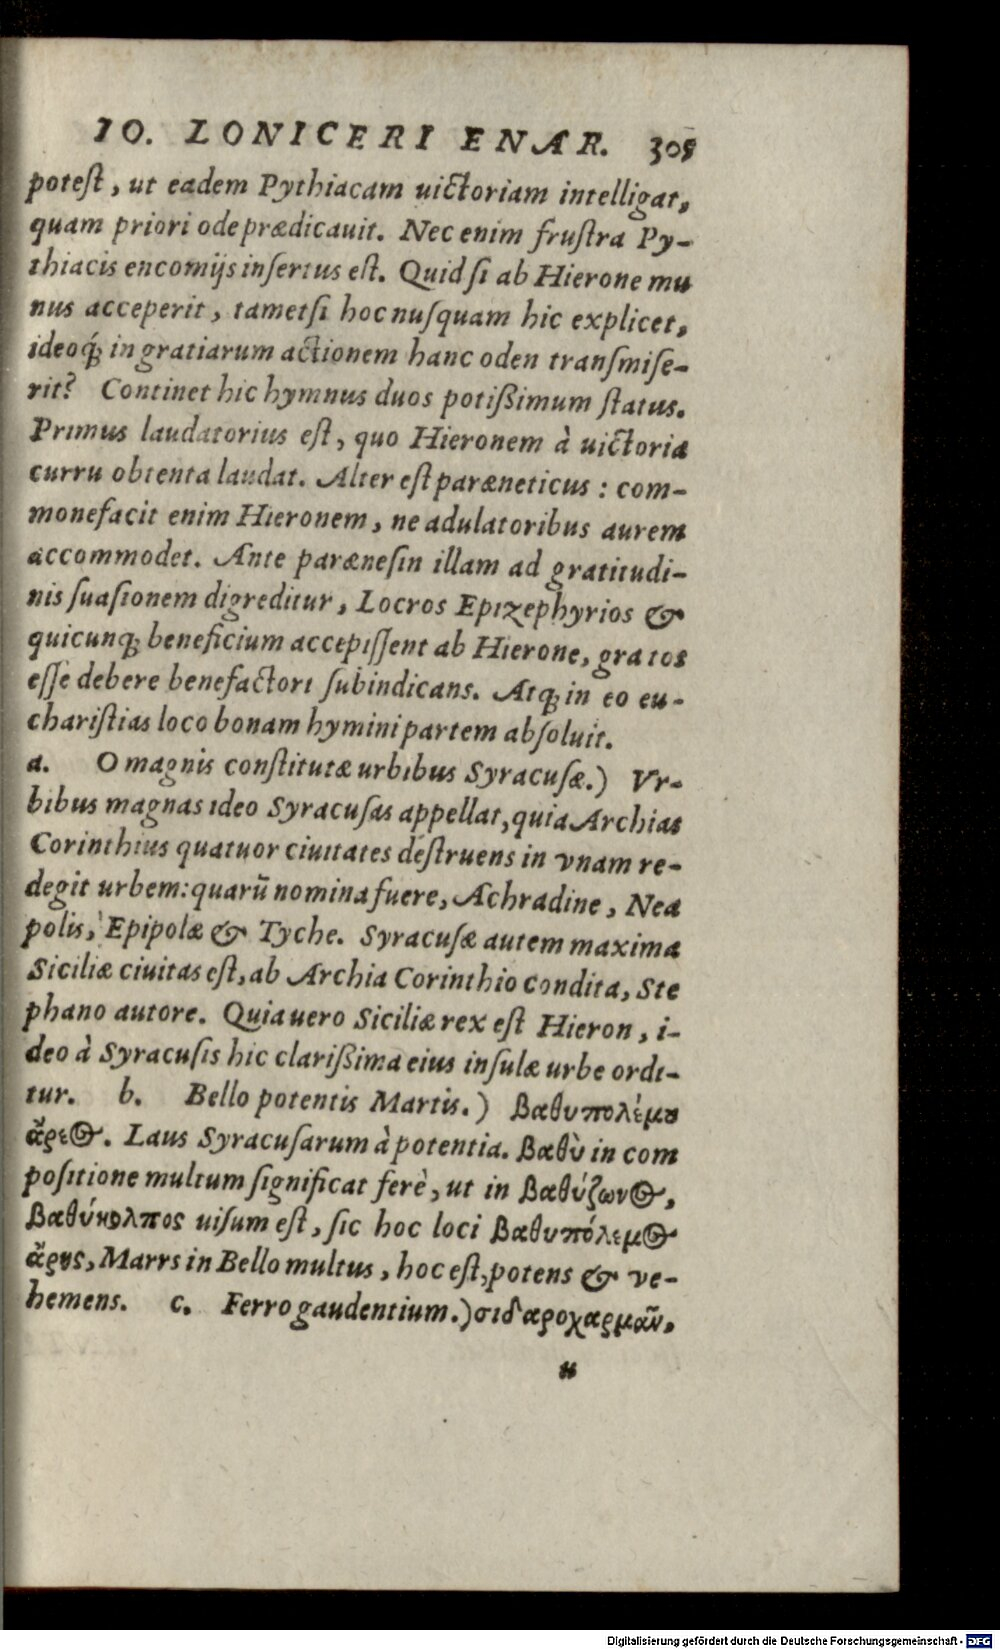 IO. LONICERI ENAR. 305
potest, ut eadem Pythiacam uictoriam intelligat,
quam priori ode prædicauit. Nec enim frustra Py-
thiacis encomijs insertus est. Quid si ab Hierone mu
nus acceperit, tametsi hoc nusquam hic explicet,
ideoq́; in gratiarum actionem hanc oden transmise-
rit? Continet hic hymnus duos potißimum status.
Primus laudatorius est, quo Hieronem à uictoria
curru obtenta laudat. Alter est paræneticus: com-
monefacit enim Hieronem, ne adulatoribus aurem
accommodet. Ante parænesin illam ad gratitudi-
nis suasionem digreditur, Locros Epizephyrios &
quicunq; beneficium accepissent ab Hierone, gratos
esse debere benefactori subindicans. Atq; in eo eu-
charistias loco bonam hymini partem absoluit.
a. O magnis constitutæ urbibus Syracusæ.) Vr-
bibus magnas ideo Syracusas appellat, quia Archias
Corinthius quatuor ciuitates destruens in vnam re-
degit urbem: quarũ nomina fuere, Achradine, Nea
polis, Epipolæ & Tyche. Syracusæ autem maxima
Siciliæ ciuitas est, ab Archia Corinthio condita, Ste
phano autore. Quia uero Siciliæ rex est Hieron, i-
deo à Syracusis hic clarißima eius insulæ urbe ordi-
tur. b. Bello potentis Martis.) βαθυπολέμου
ἄρεος. Laus Syracusarum à potentia. βαθὺ in com
positione multum significat ferè, ut in βαθύζωνος,
βαθύκολπος uisum est, sic hoc loci βαθυπόλεμος
ἄρης, Marrs in Bello multus, hoc est, potens & ve-
hemens. c. Ferro gaudentium.) σιδαροχαρμᾶν,
u
Digitalisierung gefördert durch die Deutsche Forschungsgemeinschaft - DFG